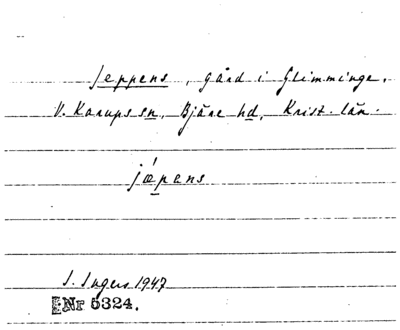 Jeppens, gård i Glimminge,
V. Karups sn, Bjäre hd, Krist. län.
jæpens
I. Ingers 1947
Nr 5324.